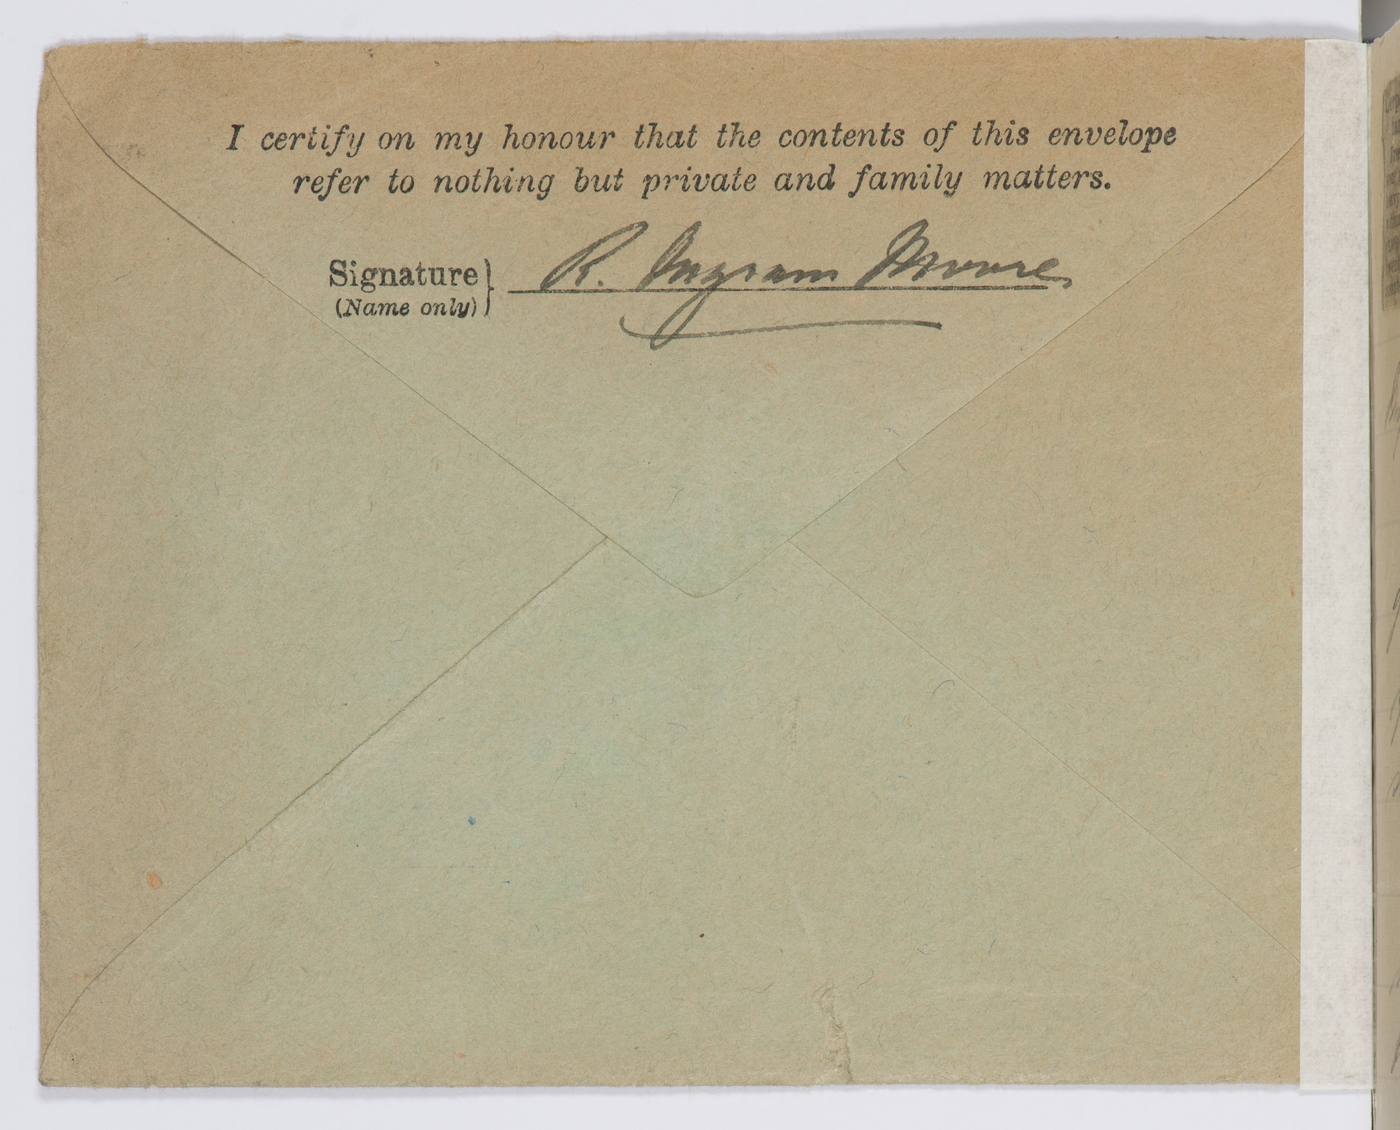 I certify on my honour that the contents of this envelope
refer to nothing but private and family matters.
Signature } R. Ingram Moore
(Name only)